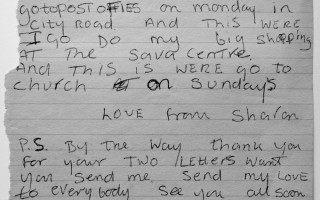 gotoPOST OFFIES on monday in
City Road And THIS WERE
I GO DO my big shopping
AT The Sava Centre
And THIS IS WERE GO to
church on Sundays
LOVE From Sharon
P.S. By the Way thank you
For your TWO Letters Want
you Send me, Send my LOVE
to everybody See you all soon